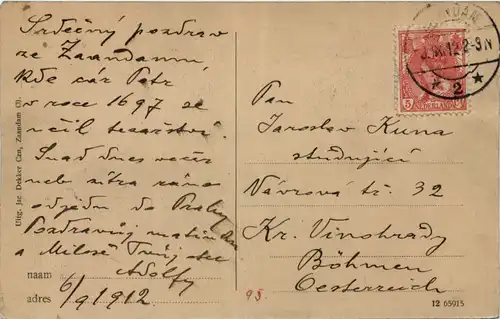 Srdečný pozdrav
ze Zaandamu,
kde cár Petr
v roce 1697 se
učil tesařství.
Snad dnes večer
neb zítra ráno
odjedu do Prahy
Pozdravuj matinku
a Miloše Tvůj otec
Adolf
naam
adres
6/9 1912
Uitg. Jac. Dekker Czn, Zaandam
ZAANDAM
12 2-3N
* 2 *
5
NEDERLAND
Pan
Jaroslav Kuna
studující
Návrova tř. 32
Kr. Vinohrady
Böhmen
Oesterreich
95.
12 65915